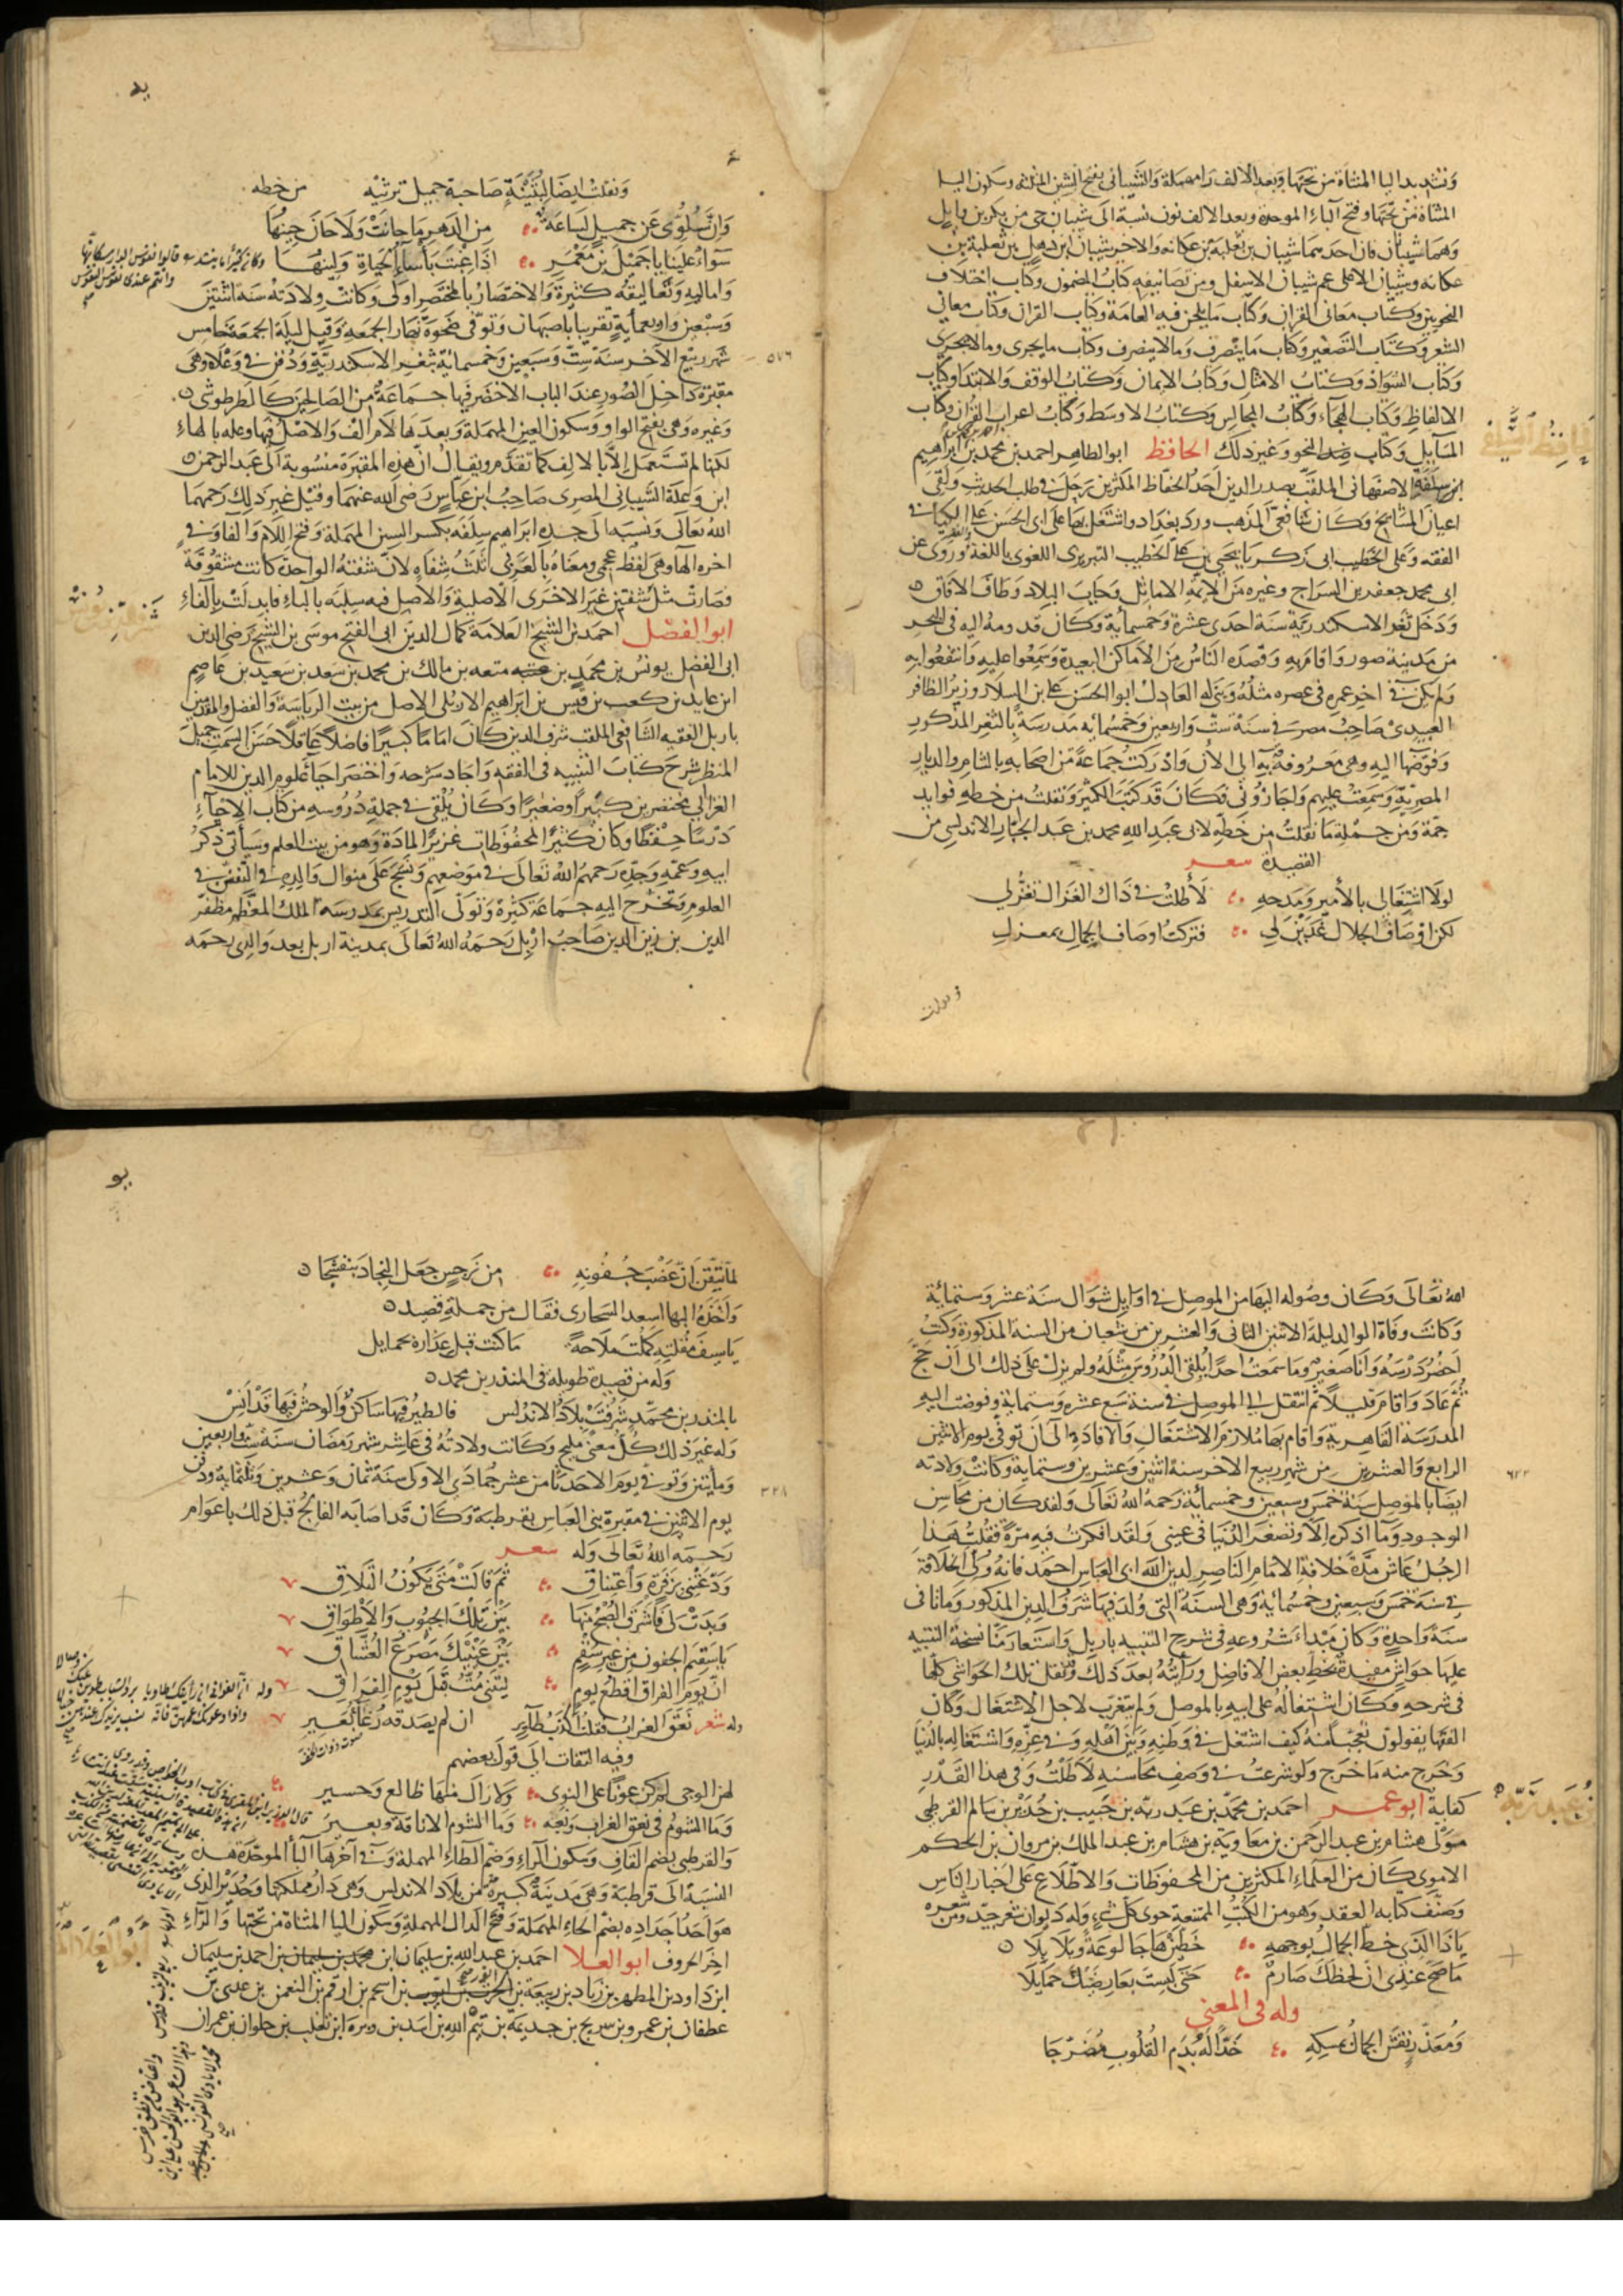 وتشديد اليا المثناة من تحتها وبعد الالف را مهملة والشيباني بفتح الشين المثلثه وسكون اليا
المثناة من تحتها وفتح الباء الموحدة وبعد الالف نون نسبة الى شيبان حي من بكر بن وايل
وهما شيبانان احدهما شيبان بن ثعلبة بن عكابه والاخر شيبان ابن ذهل بن ثعلبة بن
عكابه وشيبان الاعلى عم شيبان الاسفل ومن تصانيفه كتاب المصون وكتاب اختلاف
النحويين وكتاب معاني القران وكتاب ما يلحن فيه العامة وكتاب القران وكتاب معاني
الشعر وكتاب التصغير وكتاب ما ينصرف وما لا ينصرف وكتاب ما يجرى وما لا يجرى
وكتاب الشواذ وكتاب الامثال وكتاب الايمان وكتاب الوقف والابتدا وكتاب
الالفاظ وكتاب الهجاء وكتاب المجالس وكتاب الاوسط وكتاب اعراب القران وكتاب
المسايل وكتاب حد النحو وغير ذلك الحافظ ابو الطاهر احمد بن محمد بن ابراهيم
ابن سلفة الاصفهاني الملقب صدر الدين احد الحفاظ المكثرين رحل في طلب الحديث ولقى
اعيان المشايخ وكان شافعي المذهب ورد بغداد واشتغل بها على ابى الحسن على الكيا في
الفقه وعلى الخطيب ابى زكريا يحيى بن على الخطيب التبريزى اللغوى باللغة وروى عن
ابى محمد جعفر بن السراج وغيره من الايمة الاماثل وجاب البلاد وطاف الافاق
ودخل ثغر الاسكندرية سنة احدى عشرة وخمسماية وكان قدومه اليه في البحر
من مدينة صور واقام به وقصده الناس من الاماكن البعيدة وسمعوا عليه وانتفعوا به
ولم يكن في اخر عمره في عصره مثله وبنى له العادل ابو الحسن على بن السلار وزير الظافر
العبيدى صاحب مصر في سنة ست واربعين وخمسمايه مدرسة بالثغر المذكور
وفوضها اليه وهي معروفة به الى الان وادركت جماعة من اصحابه بالشام والديار
المصرية وسمعت عليهم واجازونى وكان قد كتب الكثير ونقلت من خطه فوايد
جمة ومن جملة ما نقلت من خطه لابى عبد الله محمد بن عبد الجبار الاندلسي من
القصيدة شعر
لولا اشتغالى بالامير ومدحه لأطلت في ذاك الغزال تغزلي
لكن اوصاف الجلال عذبن لي فتركت اوصاف الجمال بمعزل
ونقلت ايضا لبثينة صاحبة جميل ترثيه من خطه
وان سلوى عن جميل لساعة من الدهر ما حانت ولا حان حينها
سواء علينا يا جميل بن معمر اذا مت بأساء الحياة ولينها
واماليه وتعاليقه كثيرة والاختصار بالمختصر اولى وكانت ولادته سنة اثنتين
وسبعين واربعماية تقريبا باصبهان وتوفى ضحوة نهار الجمعة وقيل ليلة الجمعة خامس
شهر ربيع الاخر سنة ست وسبعين وخمسماية بثغر الاسكندرية ودفن في وعلة وهي
٥٧٦
مقبرة داخل السور عند الباب الاخضر فيها جماعة من الصالحين كالطرطوشى
وغيره وهي بفتح الواو وسكون العين المهملة وبعدها لام الف والاصل فيها وعله بالهاء
لكنها لم تستعمل الا بالالف كما تقدم ويقال ان هذه المقبرة منسوبة الى عبد الرحمن
ابن وعلة الشيبانى المصرى صاحب ابن عباس رضى الله عنهما وقيل غير ذلك رحمهما
الله تعالى ونسبه الى جده ابراهيم سلفه بكسر السين المهملة وفتح اللام والفا وفي
اخره الها وهي لفظ عجمى ومعناه بالعربى ثلث شفاه لان شفته الواحدة كانت مشقوقة
فصارت مثل شفتين غير الاخرى الاصلية والاصل فيه سلبه بالباء فابدلت بالفاء
ابو الفضل احمد بن الشيخ العلامة كمال الدين ابى الفتح موسى بن الشيخ رضى الدين
ابى الفضل يونس بن محمد بن متعه بن مالك بن محمد بن سعد بن سعيد بن عاصم
ابن عايد بن كعب بن قيس بن ابراهيم الاربلى الاصل من بيت الرياسة والفضل والمقدمين
باربل الفقيه الشافعى الملقب شرف الدين كان اماما كبيرا فاضلا عاقلا حسن السمت جميل
المنظر شرح كتاب التنبيه في الفقه واجاد شرحه واختصر احيا علوم الدين للامام
الغزالي مختصرين كبيرا وصغيرا وكان يلقى في جملة دروسه من كتاب الاحياء
درسا حفظا وكان كثير المحفوظات غزير المادة وهو من بيت العلم وسيأتي ذكر
ابيه وعمه وجده رحمهم الله تعالى في موضعهم ونسج على منوال والده في التفنن في
العلوم وتخرج اليه جماعة كثيرة وتولى التدريس بمدرسة الملك المعظم مظفر
الدين بن زين الدين صاحب اربل رحمه الله تعالى بمدينة اربل بعد والدى رحمه
الله تعالى وكان وصوله اليها من الموصل في اوايل شوال سنة عشر وستماية
وكانت وفاة الوالد ليلة الاثنين الثانى والعشرين من شعبان من السنة المذكورة وكنت
احضر درسه وانا صغير وما سمعت احدا يلقى الدروس مثله ولم يزل على ذلك الى ان حج
ثم عاد واقام قليلا ثم انتقل الى الموصل في سنة سبع عشره وستماية وفوضت اليه
المدرسة القاهرية واقام بها ملازم الاشتغال والافادة الى ان توفى يوم الاثنين
الرابع والعشرين من شهر ربيع الاخر سنة اثنين وعشرين وستماية وكانت ولادته
٦٢٢
ايضا بالموصل سنة خمس وسبعين وخمسماية رحمه الله تعالى ولقد كان من محاسن
الوجود وما اذكره الا وتصغر الدنيا في عينى ولقد افكرت فيه مرة فقلت هذا
الرجل عاش مدة خلافة الامام الناصر لدين الله ابى العباس احمد فانه ولى الخلافة
في سنة خمس وسبعين وخمسماية وهي السنة التى ولد فيها شرف الدين المذكور وماتا في
سنة واحدة وكان مبداء شروعه في شرح التنبيه باربل واستعار منا نسخة التنبيه
عليها حواش مفيدة بخط بعض الافاضل ورأيته بعد ذلك وقد نقل تلك الحواشى كلها
في شرحه وكان اشتغاله على ابيه بالموصل ولم يتغرب لاجل الاشتغال وكان
الفقها يقولون نعجب منه كيف اشتغل في وطنه وبين اهله وفي عزه واشتغاله بالدنيا
وخرج منه ما خرج ولو شرعت في وصف محاسنه لاطلت وفي هذا القدر
كفاية ابو عمر احمد بن محمد بن عبد ربه بن حبيب بن حدير بن سالم القرطبي
مولى هشام بن عبد الرحمن بن معاوية بن هشام بن عبد الملك بن مروان بن الحكم
الاموى كان من العلماء المكثرين من المحفوظات والاطلاع على اخبار الناس
وصنف كتابه العقد وهو من الكتب الممتعة حوى كل شئ وله ديوان شعر جيد ومن شعره
يا ذا الذى خط الجمال بوجهه خطين هاجا لوعة وبلابلا
ما صح عندى ان لحظك صارم حتى لبست بعارضيك حمايلا
وله في المعنى
ومعذر نقش الجمال بمسكه خدا له بدم القلوب مضرجا
لما تيقن ان عضب جفونه من نرجس جعل النجاد بنفسجا
واخذه البها اسعد السنجارى فقال من جملة قصيد
يا سيف مقلته كملت ملاحة ما كنت قبل عذاره بحمايل
وله من قصيدة طويلة في المنذر بن محمد
بالمنذر بن محمد شرفت بلاد الاندلس فالطير فيها ساكن والوحش فيها قد انس
وله غير ذلك كل معنى مليح وكانت ولادته في عاشر شهر رمضان سنة ست واربعين
ومأيتين وتوفي يوم الاحد ثامن عشر جمادى الاولى سنة ثمان وعشرين وثلثماية ودفن
٣٢٨
يوم الاثنين في مقبرة بنى العباس بقرطبة وكان قد اصابه الفالج قبل ذلك باعوام
رحمه الله تعالى وله شعر
ودعتنى بزفرة واعتناق ثم قالت متى يكون التلاق
وبدت لى فاشرق الصبح منها بين تلك الجيوب والاطواق
يا سقيم الجفون من غير سقم بين عينيك مصرع العشاق
ان يوم الفراق افظع يوم ليتنى مت قبل يوم الفراق
وله شعر نعق الغراب فقلت اكذب طائر ان لم يصدقه رغاء بعير
وفيه التفات الى قول بعضهم
لهن الوجى لم كن عونا على النوى ولا زال منها ظالع وحسير
وما الشوم في نعق الغراب ونعبه وما الشوم الا ناقة وبعير
والقرطبى بضم القاف وسكون الراء وضم الطاء المهملة وفي آخرها الباء الموحدة هذه
النسبة الى قرطبة وهي مدينة كبيرة من بلاد الاندلس وهي دار مملكتها وحدير الذى
هو احد اجداده بضم الحاء المهملة وفتح الدال المهملة وسكون اليا المثناة من تحتها والراء
اخر الحروف ابو العلا احمد بن عبد الله بن سليمان ابن محمد بن سليمان بن احمد بن سليمان
ابن داود بن المطهر بن زياد بن ربيعة بن الحرث بن ربيعة بن اسحم بن ارقم بن النعمن بن عدى بن
غطفان بن عمرو بن سريح بن جديمة بن تيم الله بن اسد بن وبرة ابن تغلب بن حلوان بن عمران